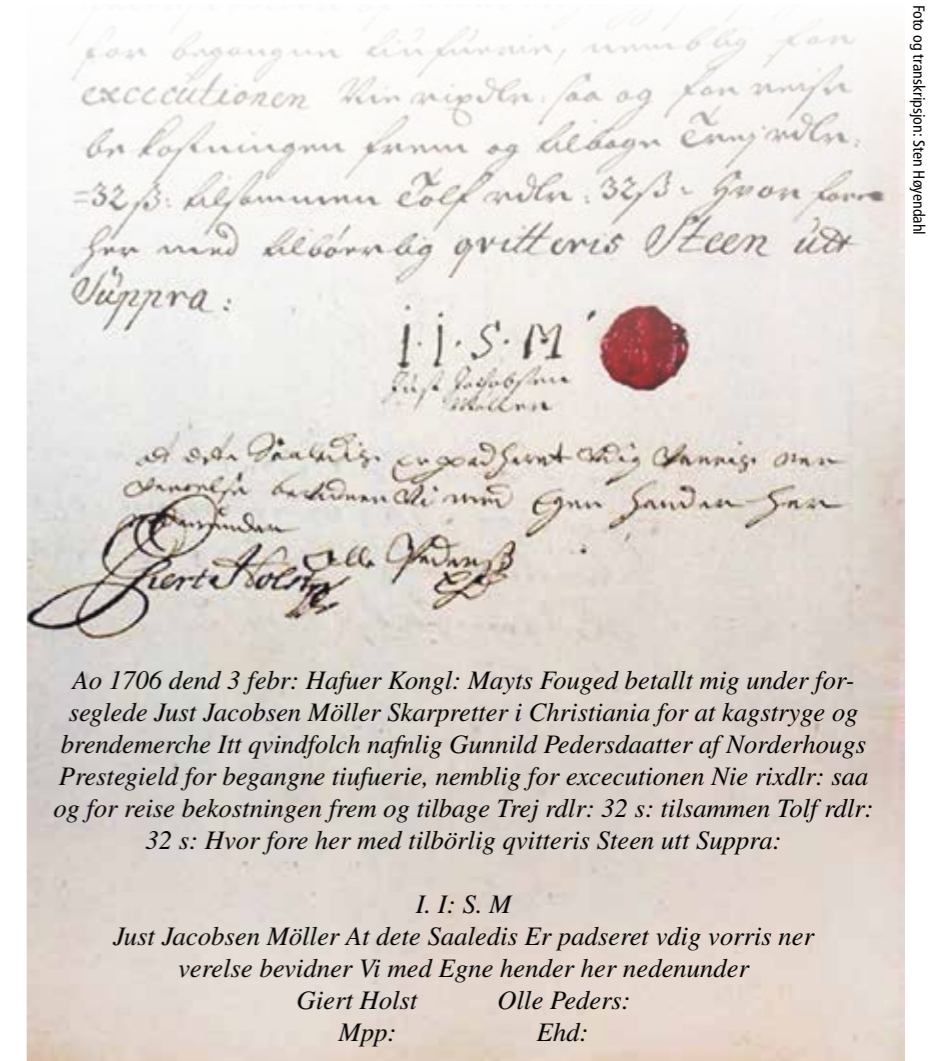 for begangne tiufuerie, nemblig for
excecutionen Nie rixdlr: saa og for reise
bekostningen frem og tilbage Trej rdlr:
=32 ß: tilsammen Tolf rdlr: 32 ß: Hvor fore
her med tilböerlig qvitteris Steen utt
Suppra:
I·I·S·M
Just Jacobsen
Möller
At dete Saaledis Er padseret vdig vorris ner
verelse bevidner Vi med Egne hender her
nedenunder
Giert Holst Olle Peders
Ao 1706 dend 3 febr: Hafuer Kongl: Mayts Fouged betallt mig under for-
seglede Just Jacobsen Möller Skarpretter i Christiania for at kagstryge og
brendemerche Itt qvindfolch nafnlig Gunnild Pedersdaatter af Norderhougs
Prestegield for begangne tiufuerie, nemblig for excecutionen Nie rixdlr: saa
og for reise bekostningen frem og tilbage Trej rdlr: 32 s: tilsammen Tolf rdlr:
32 s: Hvor fore her med tilbörlig qvitteris Steen utt Suppra:
I. I: S. M
Just Jacobsen Möller At dete Saaledis Er padseret vdig vorris ner
verelse bevidner Vi med Egne hender her nedenunder
Giert Holst Olle Peders:
Mpp: Ehd:
Foto og transkripsjon: Sten Høyendahl